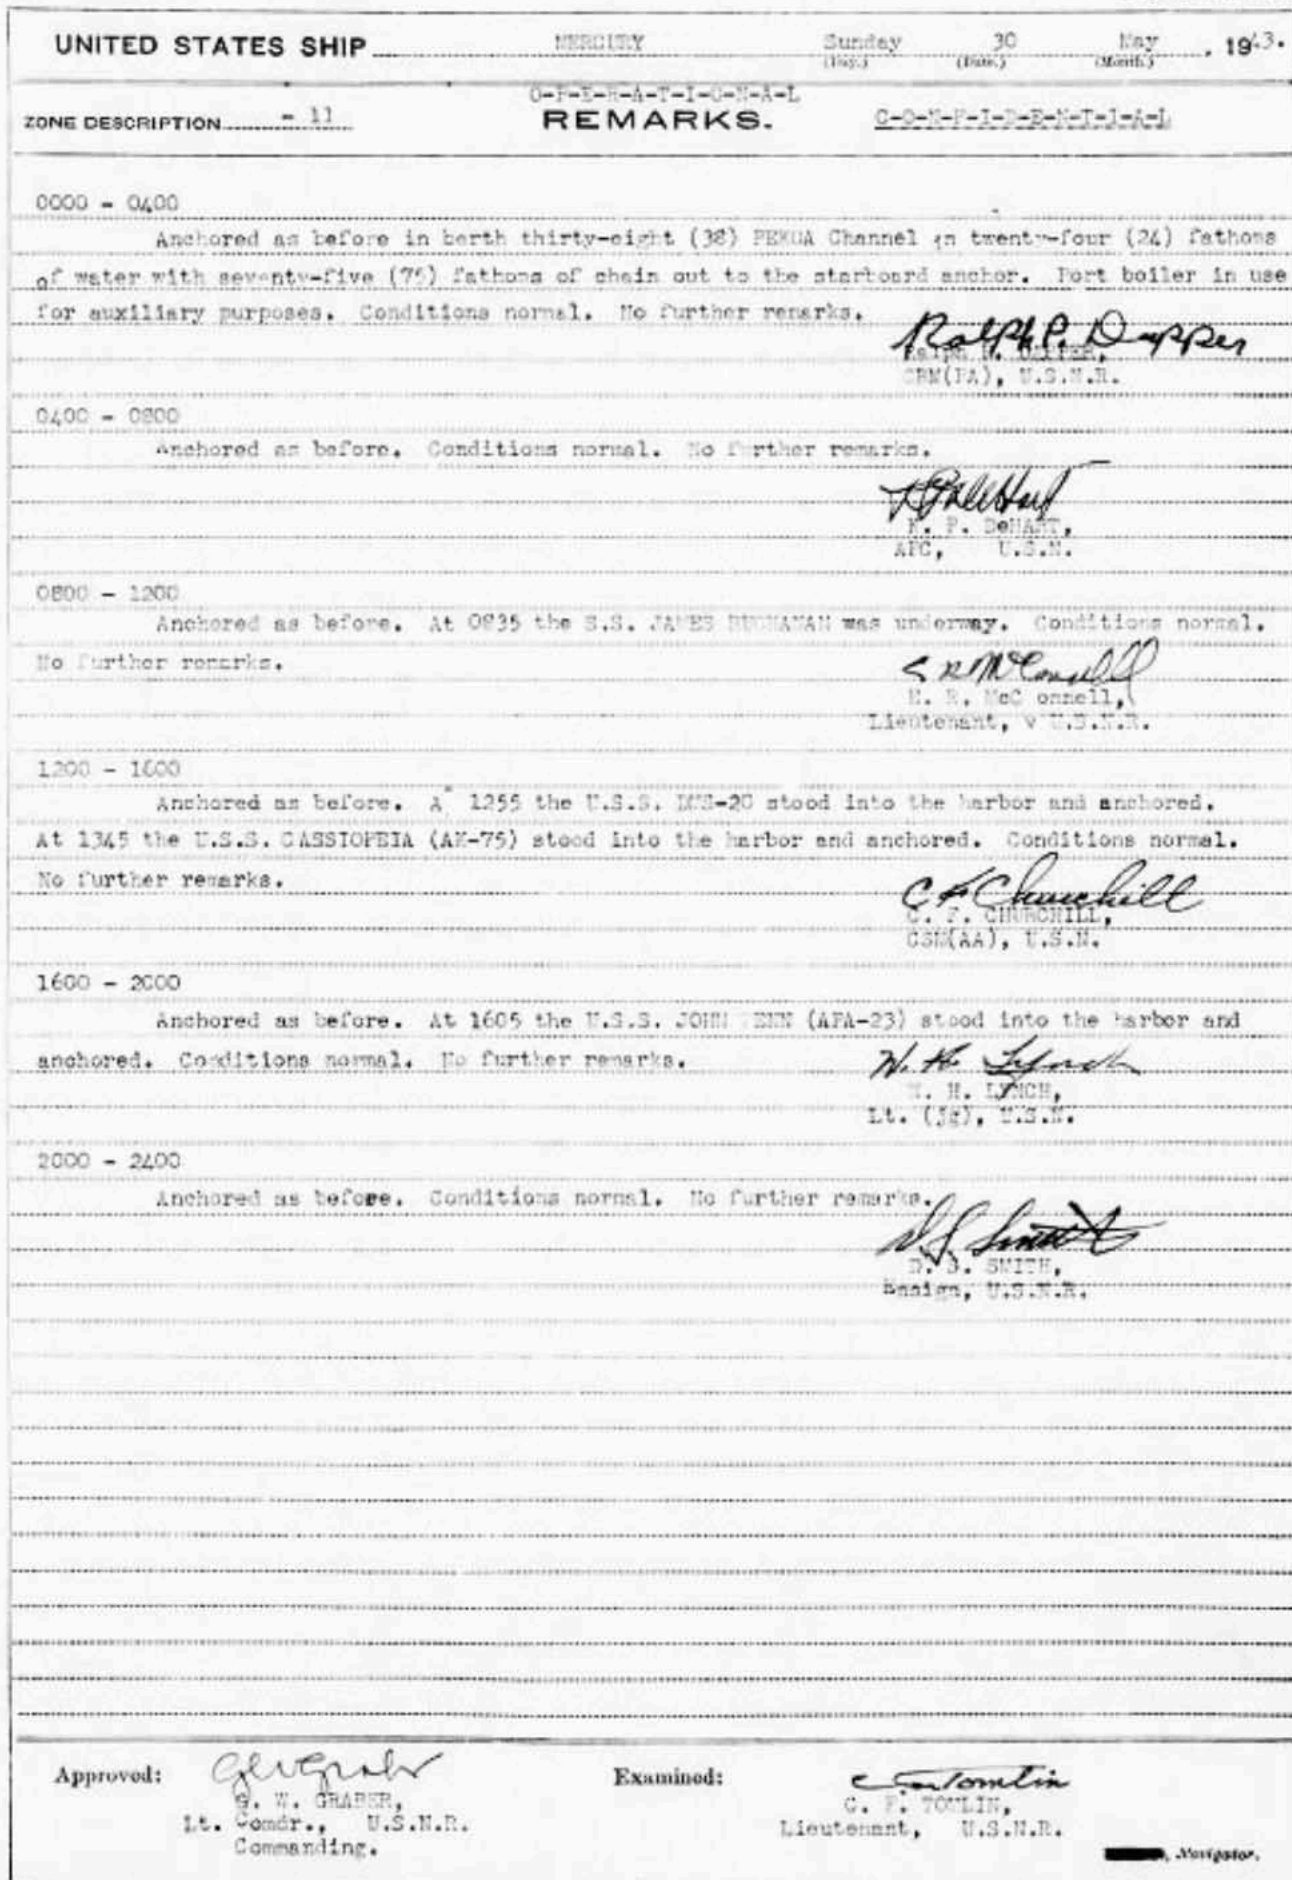 UNITED STATES SHIP MERCURY Sunday 30 May , 1943.
(Day.) (Date.) (Month.)
O-P-E-R-A-T-I-O-N-A-L
ZONE DESCRIPTION - 11 REMARKS. C-O-N-F-I-D-E-N-T-I-A-L
0000 - 0400
Anchored as before in berth thirty-eight (38) Channel in twenty-four (24) fathoms
of water with seventy-five (75) fathoms of chain out to the starboard anchor. Port boiler in use
for auxiliary purposes. Conditions normal. No further remarks.
Ralph P. Dapper
Ralph P. DAPPER,
CBM(PA), U.S.N.R.
0400 - 0800
Anchored as before. Conditions normal. No further remarks.
P. DeHART,
APC, U.S.N.
0800 - 1200
Anchored as before. At 0835 the S.S. JAMES BUCHANAN was underway. Conditions normal.
No further remarks.
E R McConnell
E. R. McC onnell,
Lieutenant, v U.S.N.R.
1200 - 1600
Anchored as before. A 1255 the U.S.S. stood into the harbor and anchored.
At 1345 the U.S.S. CASSIOPEIA (AK-75) stood into the harbor and anchored. Conditions normal.
No further remarks.
C F Churchill
C. F. CHURCHILL,
CSM(AA), U.S.N.
1600 - 2000
Anchored as before. At 1605 the U.S.S. JOHN PENN (APA-23) stood into the harbor and
anchored. Conditions normal. No further remarks.
W. H. Lynch
W. H. LYNCH,
Lt. (jg), U.S.N.
2000 - 2400
Anchored as before. Conditions normal. No further remarks.
D. S. Smith
D. S. SMITH,
Ensign, U.S.N.R.
Approved: G W Graber Examined: C F Tomlin
G. W. GRABER, C. F. TOMLIN,
Lt. Comdr., U.S.N.R. Lieutenant, U.S.N.R.
Commanding. , Navigator.